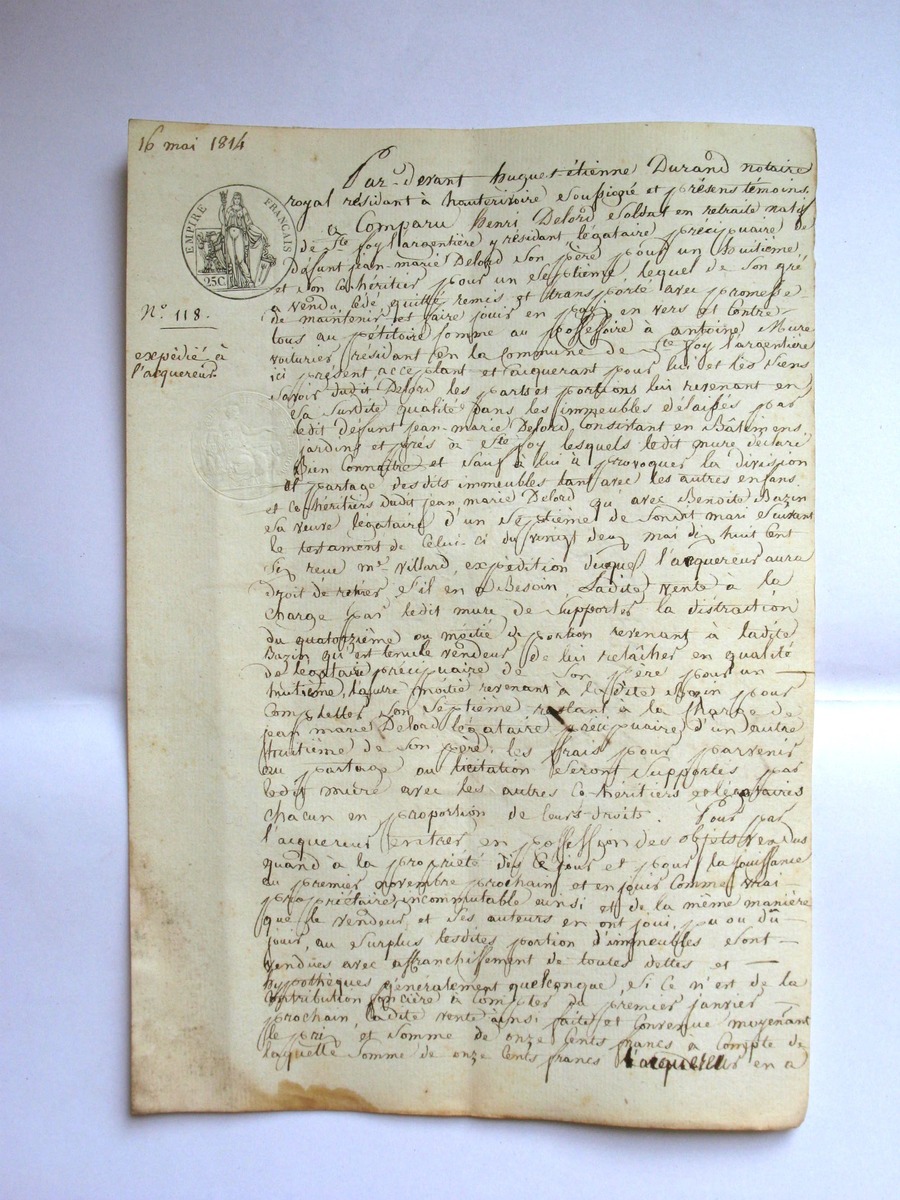 16 mai 1814
Par-devant huguet-étienne Durand notaire
royal résidant à hauterivoire soussigné et présens témoins.
a Comparu henri Delord soldat en retraite natif
de Ste foy l'argentière y résidant légataire précipuaire de
Défunt jean-marie Delord son père pour un huitième
et son cohéritier pour un septième, lequel de son gré
a vendu cédé quitté remis et transporté avec promesse
de maintenir et faire jouir en paix en vers et contre
tous au pétitoire comme au possessoire à antoine Mure
voiturier résidant en la commune de Ste foy l'argentière
ici présent, acceptant et aiquerant pour lui et les siens
Savoir dudit Delord les parts et portions lui revenant en
sa susdite qualité dans les immeubles délaissés par
ledit défunt jean-marie Delord, Consistant en Bâtimens
jardins et prés à Ste foy lesquels ledit mure déclare
Bien Connaître et sauf à lui à provoquer la division
et partage desdits immeubles tant avec les autres enfans
et cohéritiers dudit jean marie Delord qu'avec Benoite Bazin
sa veuve légataire d'un septième de sondit mari suivant
le testament de Celui-ci du vingt deux mai dix huit cent
six reçu me Villard, expédition duquel l'acquereur aura
droit de retirer s'il en a Besoin Ladite vente à la
charge par ledit mure de supporter la distraction
du quatorzième ou moitié de portion revenant à ladite
Bazin qu'est tenu le vendeur de lui relâcher en qualité
de légataire précipuaire de son père pour un
huitième, l'autre moitié revenant à ladite Bazin pour
Completter son septième restant à la charge de
jean marie Delord légataire précipuaire d'un autre
huitième de son père; les frais pour parvenir
au partage ou licitation seront supportés par
ledit mure avec les autres co-héritiers et légataires
chacun en proportion de leurs droits. Pour par
l'aiquereur entrer en possession des objets vendus
quand à la propriété dès ce jour et pour la jouissance
au premier novembre prochain et en jouir comme vrai
propriétaire incommutable ainsi et de la même manière
que le vendeur et ses auteurs en ont joui, pu ou dû
jouir, au surplus lesdites portion d'immeubles sont
vendues avec affranchissement de toutes dettes et
hypothèques généralement quelconque, si ce n'est de la
Contribution foncière à compter du premier janvier
prochain ladite vente ainsi faite et convenue moyennant
le prix et somme de onze cents francs a compte de
laquelle somme de onze cents francs l'acquereur en a
EMPIRE FRANÇAIS
25C
No 118.
expédié à
l'acquereur